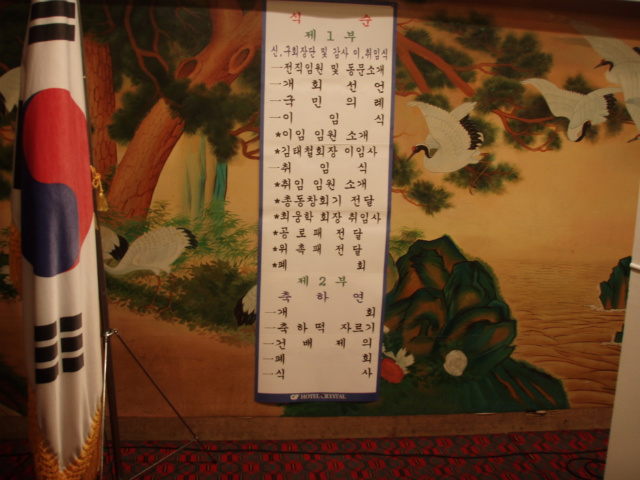 식 순
제 1 부
신.구회장단 및 감사 이.취임식
一전직임원 및 동문소개
一개 회 선 언
一국 민 의 례
一이 임 식
★이임 임원 소개
★김태철회장 이임사
一취 임 식
★취임 임원 소개
★총동창회기 전달
★최웅학 회장 취임사
★공로패 전달
★위촉패 전달
★폐 회
제 2 부
축 하 연
一개 회
一축하떡 자르기
一건 배 제 의
一폐 회
一식 사
HOTEL